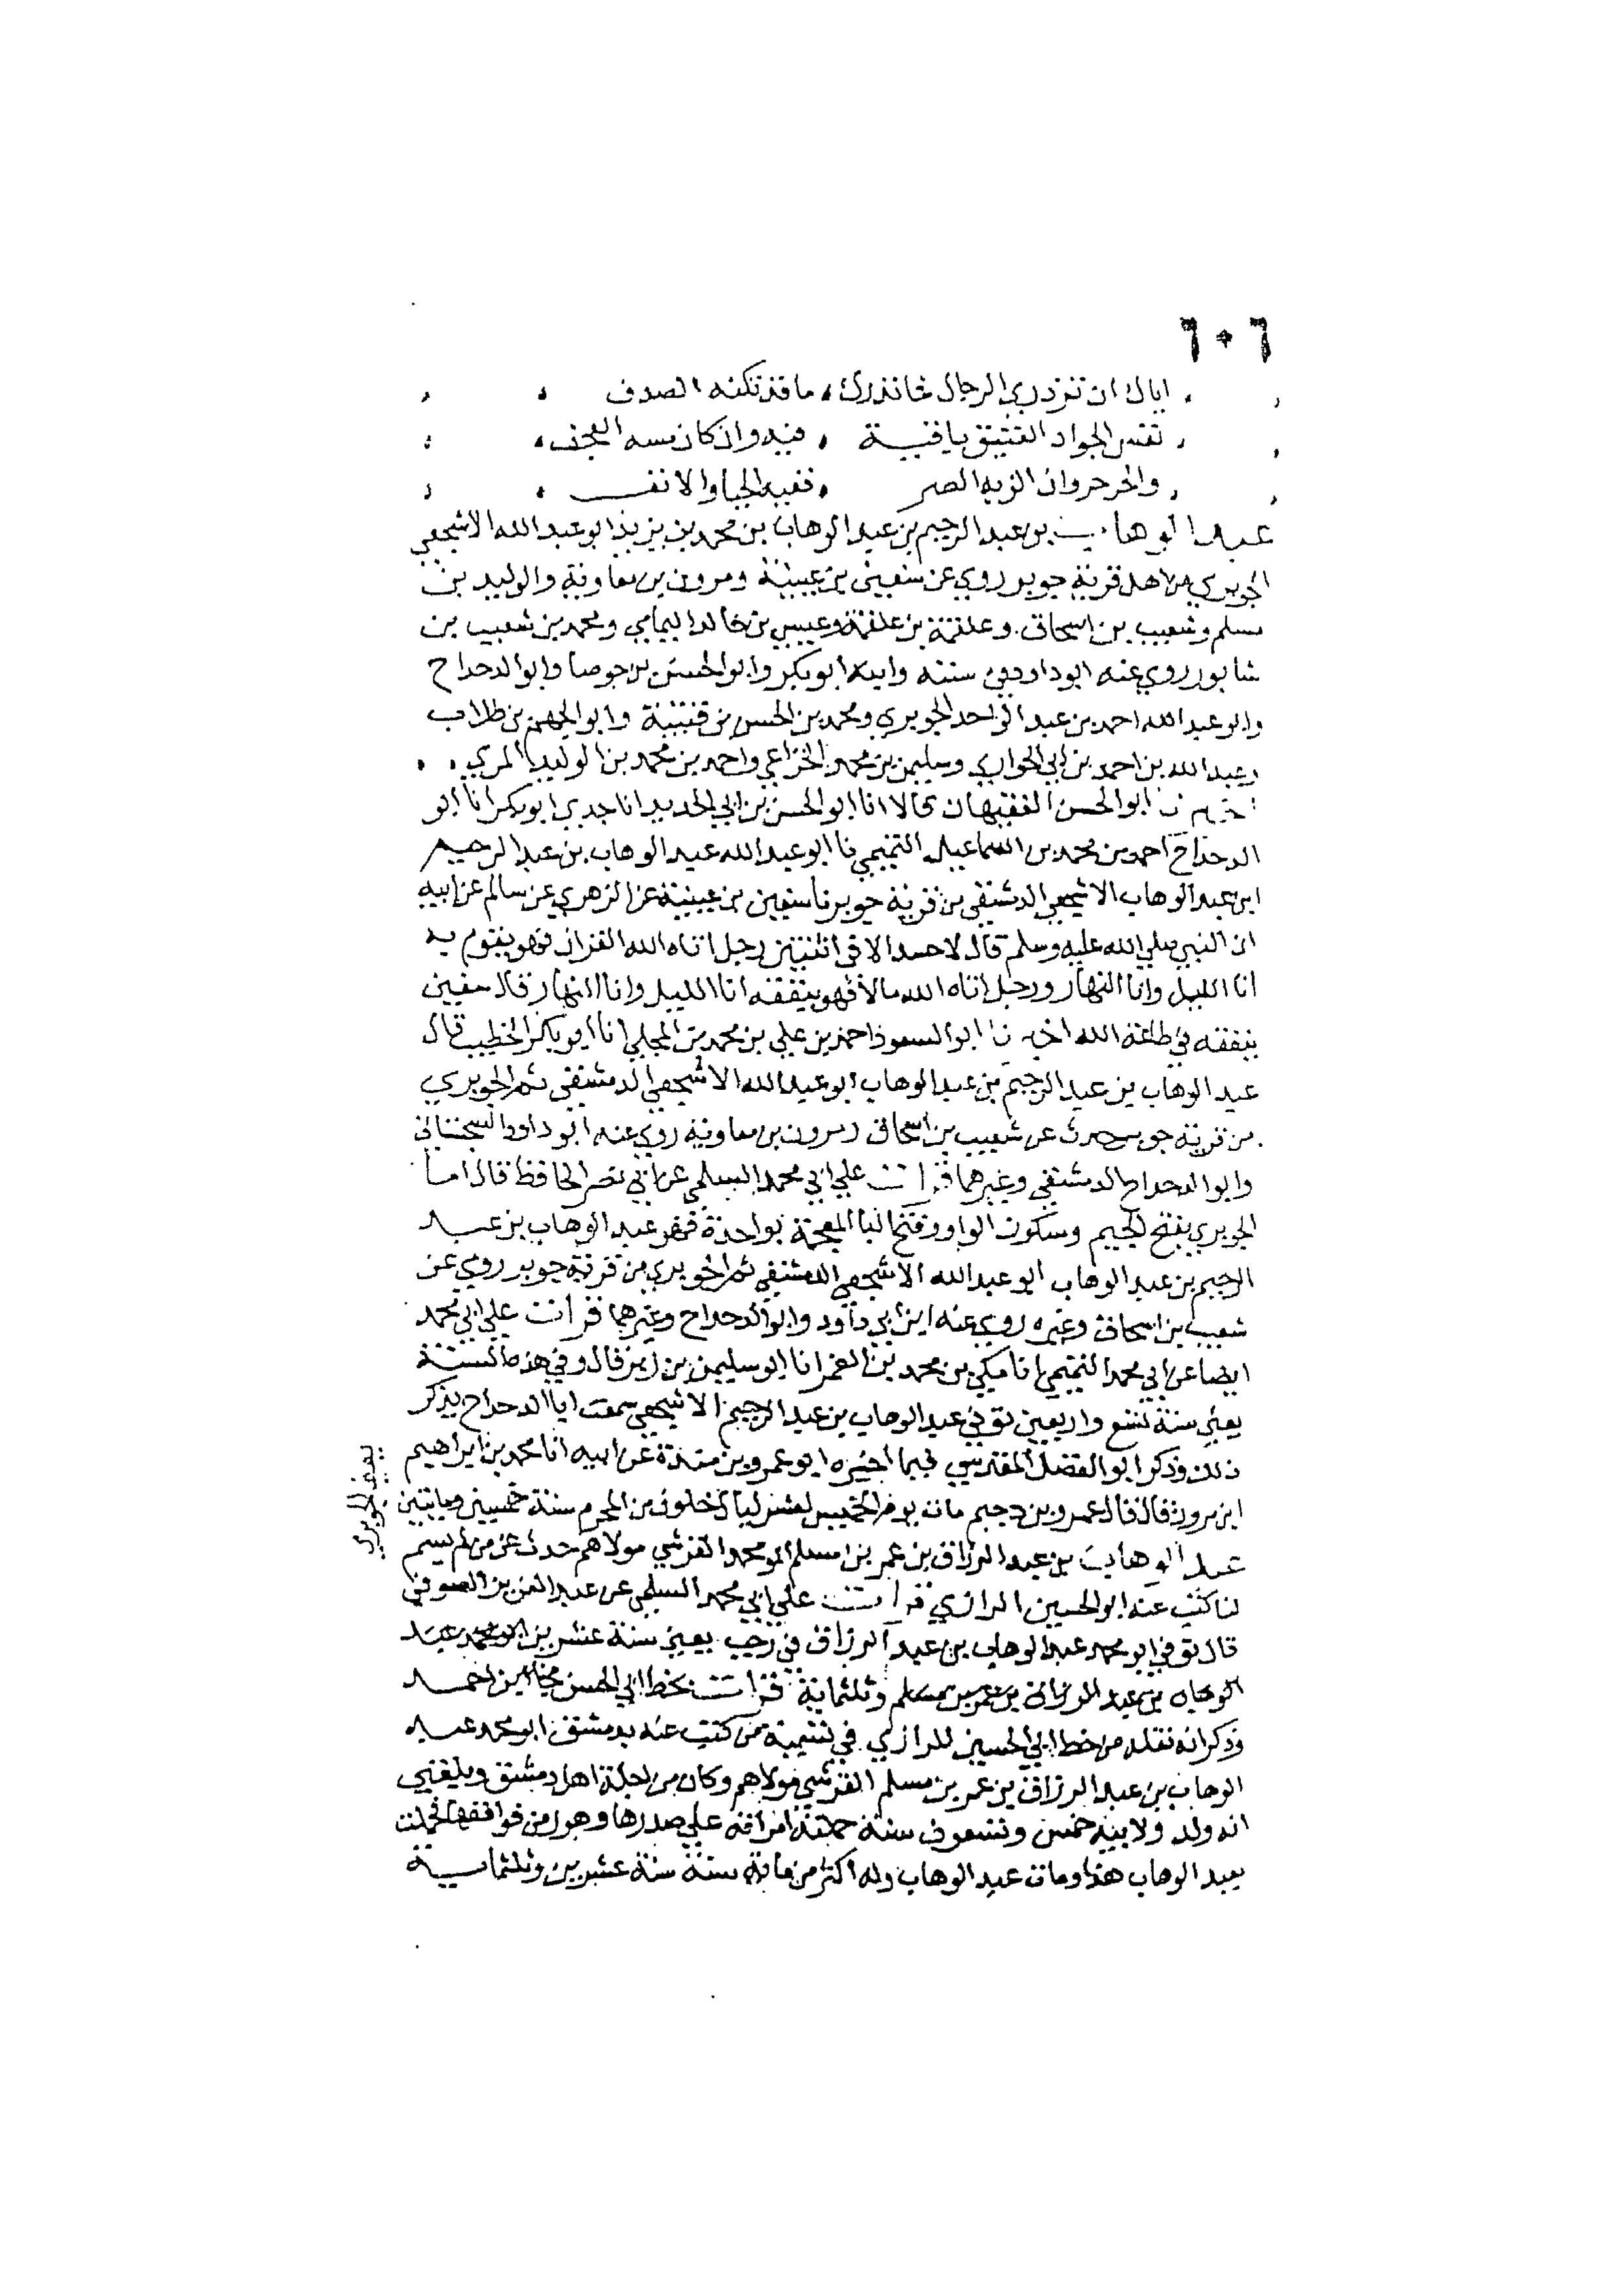 ٦٠٦
اياك ان تزدري الرجال فما تدري ، ما قد تكنه الصدف
نفس الجواد العتيق باقية ، فيه وان كان مسه العجف
والحر حر وان الم به الضر ، ففيه الحيا والانف
عبد الوهاب بن عبد الرحيم بن عبد الوهاب بن محمد بن يزيد ابو عبد الله الاشجعي
الجوبري من اهل قرية جوبر روي عن سفين بن عيينة ومرون بن معاوية والوليد بن
مسلم وشعيب بن اسحاق وعلقمة بن علقمة وعيسي بن خالد اليمامي ومحمد بن شعيب بن
شابور روي عنه ابو داود في سننه وابنه ابو بكر وابو الحسن بن جوصا وابو الدحداح
وابو عبد الله احمد بن عبد الواحد الجوبري ومحمد بن الحسن بن قتيبة وابو الجهم بن طلاب
وعبد الله بن احمد بن ابي الحواري وسليمن بن محمد الخزاعي واحمد بن محمد بن الوليد المري
اخبرنا ابو الحسن الفقيهان قالا انا ابو الحسن بن ابي الحديد انا جدي ابو بكر انا ابو
الدحداح احمد بن محمد بن اسماعيل التميمي نا ابو عبد الله عبد الوهاب بن عبد الرحيم
ابن عبد الوهاب الاشجعي الدمشقي من قرية جوبر نا سفين بن عيينة عن الزهري عن سالم عن ابيه
ان النبي صلي الله عليه وسلم قال لا حسد الا في اثنتين رجل اتاه الله القران فهو يقوم به
انا الليل وانا النهار ورجل اتاه الله مالا فهو ينفقه انا الليل وانا النهار قال سفين
ينفقه في طاعة الله اخبرنا ابو السعود احمد بن علي بن محمد بن المجلي انا ابو بكر الخطيب قال
عبد الوهاب بن عبد الرحيم بن عبد الوهاب ابو عبد الله الاشجعي الدمشقي ثم الجوبري
من قرية جوبر حدث عن شعيب بن اسحاق ومرون بن معاوية روي عنه ابو داود السجستاني
وابو الدحداح الدمشقي وغيرهما قرات علي ابي محمد السلمي عن ابي نصر الحافظ قال اما
الجوبري بفتح الجيم وسكون الواو وفتح البا المعجمة بواحدة فهو عبد الوهاب بن عبد
الرحيم بن عبد الوهاب ابو عبد الله الاشجعي الدمشقي ثم الجوبري من قرية جوبر روي عن
شعيب بن اسحاق وغيره روي عنه ابن ابي داود وابو الدحداح وغيرهما قرات علي ابي محمد
ايضا عن ابي محمد التميمي انا مكي بن محمد بن الغمر انا ابو سليمن بن زبر قال وفي هذه السنة
يعني سنة تسع واربعين توفي عبد الوهاب بن عبد الرحيم الاشجعي سمعت ابا الدحداح يذكر
ذلك وذكر ابو الفضل المقدسي فيما اخبره ابو عمرو بن مندة عن ابيه انا محمد بن ابراهيم
ابن مرون قال قال عمرو بن دحيم مات يوم الخميس لعشر ليال خلون من المحرم سنة خمسين وماتين
يعني الجوبري
عبد الوهاب بن عبد الرزاق بن عمر بن مسلم ابو محمد القرشي مولاهم حدث عن من لم يسم
لنا كتب عنه ابو الحسين الرازي قرات علي ابي محمد السلمي عن عبد العزيز الصوفي
قال توفي ابو محمد عبد الوهاب بن عبد الرزاق في رجب يعني سنة عشرين ابو محمد عبد
الوهاب بن عبد الرزاق بن عمر بن مسلم وثلثماية قرات بخط ابي الحسن نجا بن احمد
وذكر انه نقله من خط ابي الحسين الرازي في تسمية من كتب عنه بدمشق ابو محمد عبد
الوهاب بن عبد الرزاق بن عمر بن مسلم القرشي مولاهم وكان من اجلة اهل دمشق وبلغني
انه ولد ولابيه خمس وتسعون سنة حملته امراته علي صدرها وهو من فوافقها فحملت
بعبد الوهاب هذا ومات عبد الوهاب وله اكثر من ماية سنة سنة عشرين وثلثماية